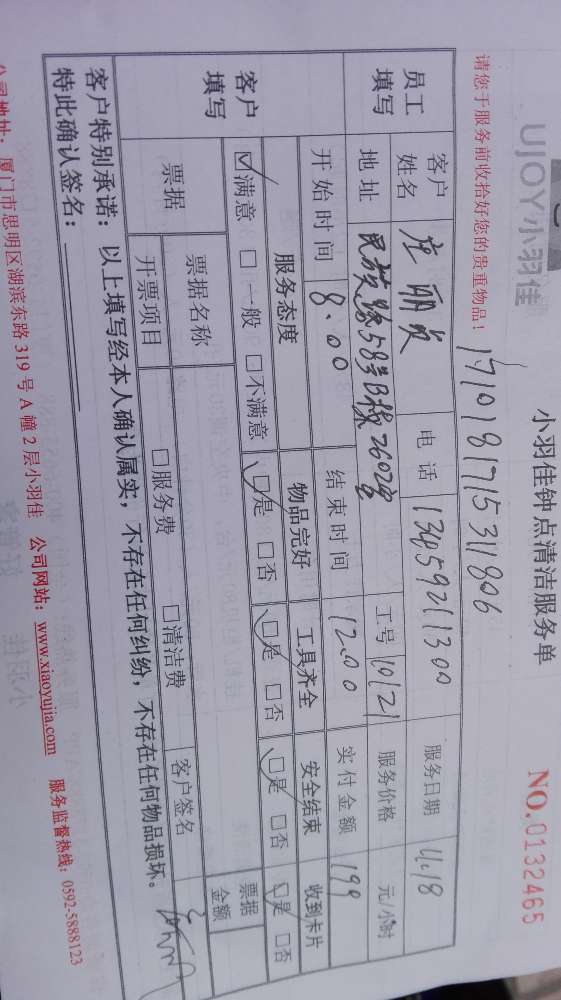 UJOY小羽佳
小羽佳钟点清洁服务单
NO.0132465
请您于服务前收拾好您的贵重物品！
1710181715311806
员工填写 客户姓名 庄丽贞 电话 13459211300 服务日期 4.18
地址 民族路58号B梯2602室 工号 10121 服务价格 元/小时
开始时间 8.00 结束时间 12.00 实付金额 199
客户填写 服务态度 物品完好 工具齐全 安全结束 收到卡片
☑满意 □一般 □不满意 ☑是 □否 ☑是 □否 ☑是 □否 ☑是 □否
票据 票据名称 票据金额
开票项目 □服务费 □清洁费 客户签名
客户特别承诺：以上填写经本人确认属实，不存在任何纠纷，不存在任何物品损坏。
特此确认签名：
公司地址：厦门市思明区湖滨东路 319 号 A 幢 2 层小羽佳 公司网站：www.xiaoyujia.com 服务监督热线：0592-5888123